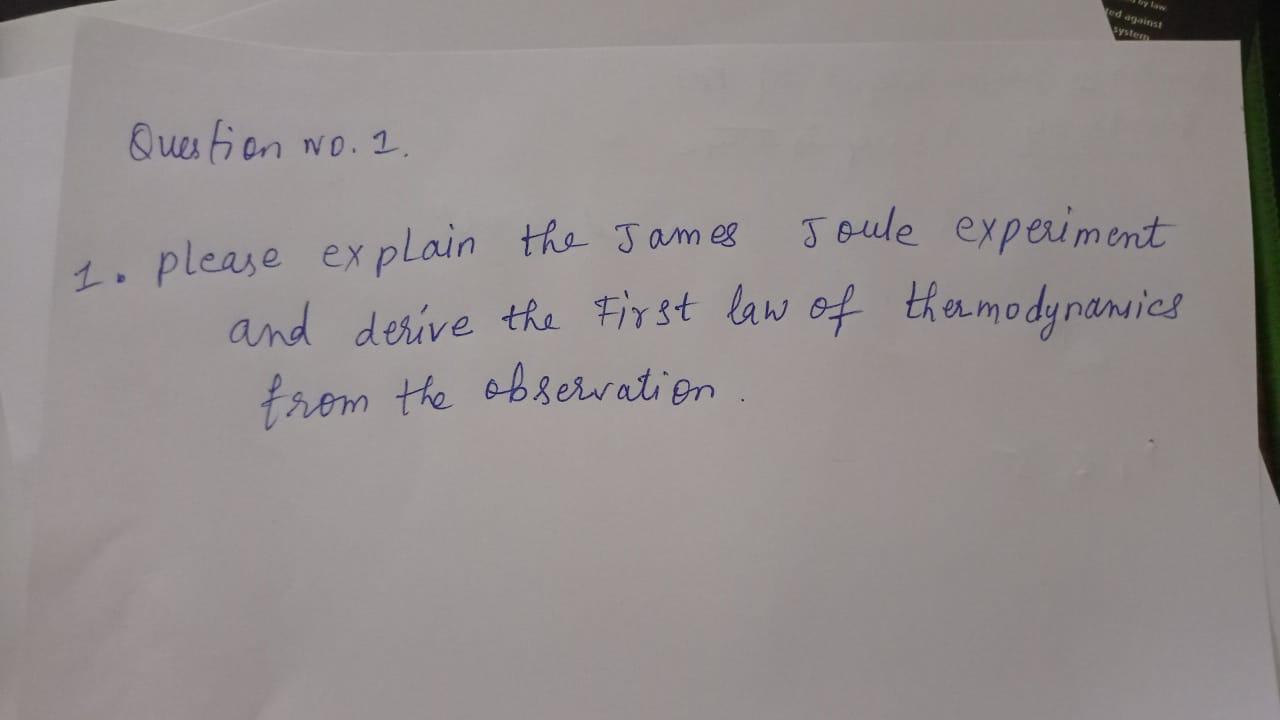 by law
ted against
system
Question No. 1.
1. please explain the James Joule experiment
and derive the First law of thermodynamics
from the observation.